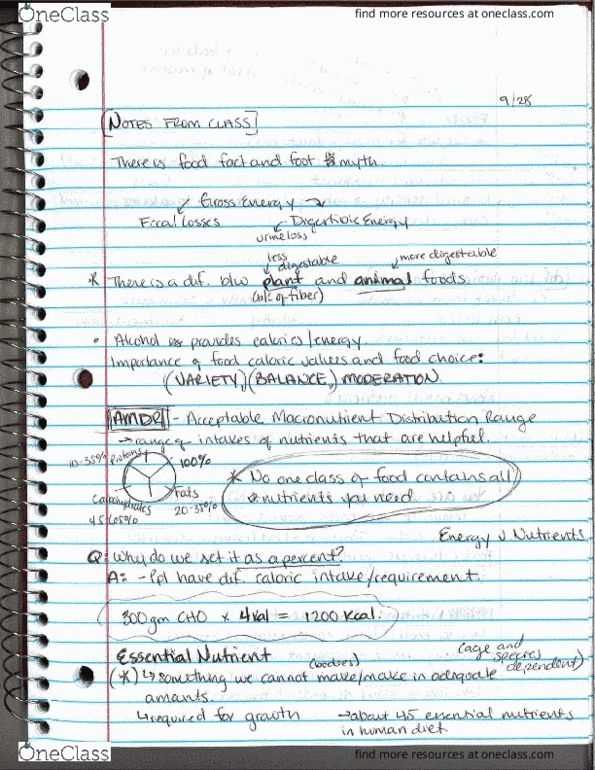 OneClass
find more resources at oneclass.com
9/28
NOTES FROM CLASS
There is food fact and foot myth.
Gross Energy
Fecal Losses
Digestible Energy
urine loss
less digestable
more digestable
* There is a dif. b/w plant and animal foods.
(b/c of fiber)
• Alcohol provides calories/energy.
Importance of food caloric values and food choice:
(VARIETY,)(BALANCE,) MODERATION.
AMDR - Acceptable Macronutrient Distribution Range
→ range of intakes of nutrients that are helpful.
10-35% Proteins
100%
Carbohydrates
45-65%
Fats
20-35%
* No one class of food contains all
nutrients you need
Energy v Nutrients
Q: Why do we set it as a percent?
A: - Ppl have dif. caloric intake/requirement.
300gm CHO × 4kal = 1200 kcal.
Essential Nutrient
(bodies)
(age and species dependent)
(*) ↳ something we cannot make/make in adequate
amants.
↳ required for growth
→ about 45 essential nutrients
in human diet.
OneClass
find more resources at oneclass.com